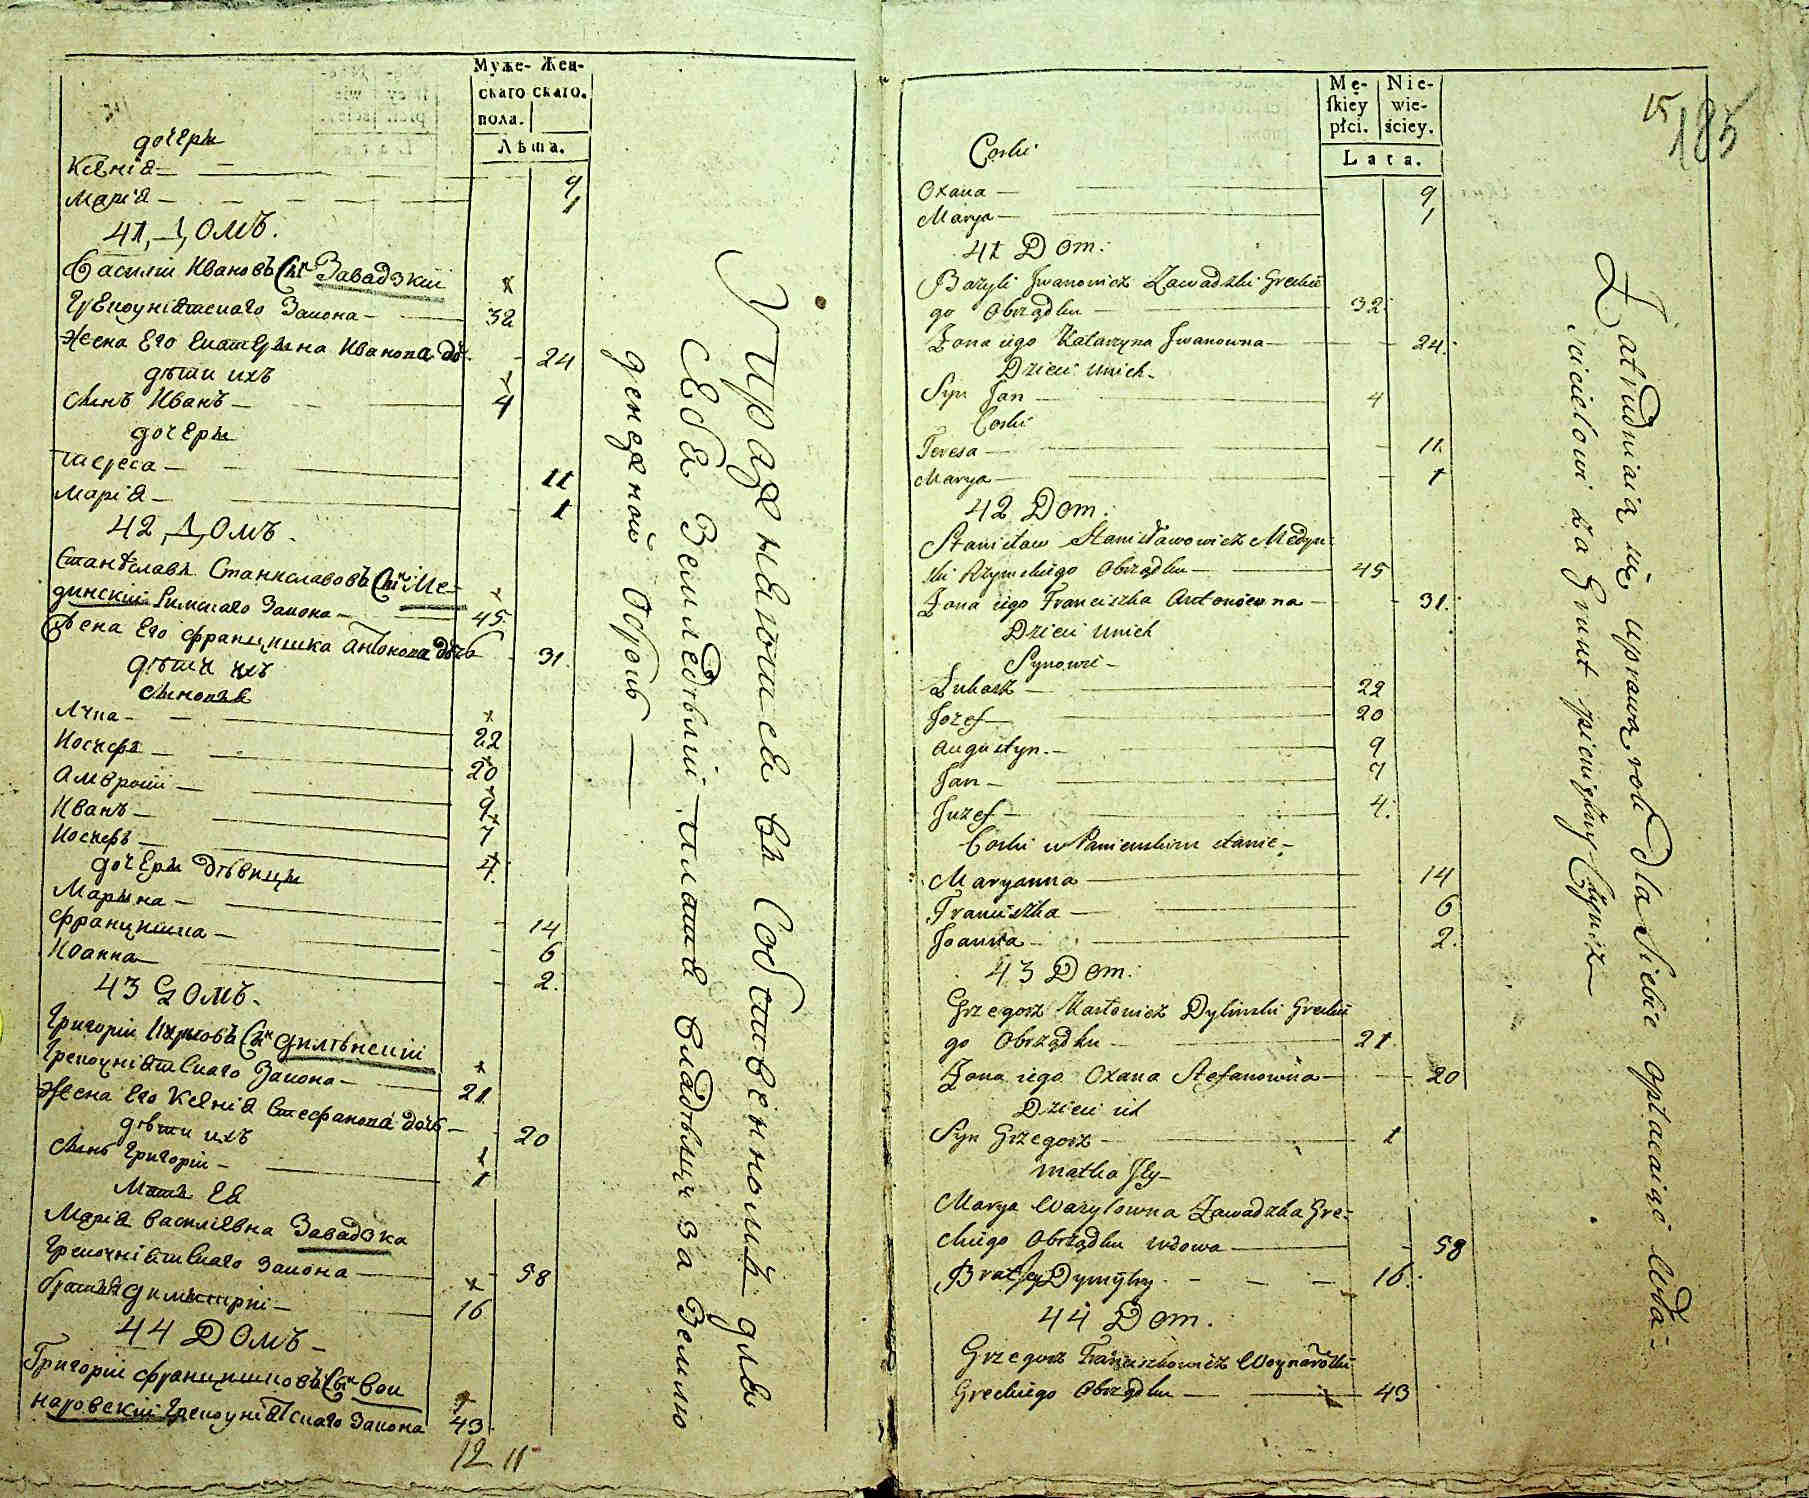 Муже- Жен-
скаго скаго.
пола.
Лѣта.
дочери
Ксенія 9
Марія 1
41 Домъ.
Василій Ивановъ Снъ Завадзкій
Грекоуніятскаго Закона 32
Жена Его Екатерина Иванова доч. 24
дѣти ихъ
Сынъ Иванъ 4
дочери
Тереса 11
Марія 1
42 Домъ.
Станіславъ Станиславовъ Снъ Ме-
динскій Римскаго Закона 45
Жена Его Францишка Антонова дочь 31
дѣти ихъ
Сыновья
Лука 22
Иосифъ 20
Амвросій 9
Иванъ 7
Иосифъ 4
дочери дѣвицы
Марина 14
Францишка 6
Иоанна 2
43 Домъ.
Григорій Снъ Дилѣнскій
Грекоуніятскаго Закона 21
Жена Его Ксенія Стефанова дочь 20
дѣти ихъ
Сынъ Григорій 1
Мать Ея
Марія Василіевна Завадзка
Грекоуніятскаго Закона 58
братъ Димитрій 16
44 Домъ
Григорій Францишковъ Снъ Вой
наровскій Грекоуніятскаго Закона 43
12 11
Упражняются въ Собственномъ для
Себя Земледѣліи платя владѣльцу за Землю
денежной Оброкъ
15
185
Mę- Nie-
ſkiey wie-
płci. ściey.
Lata.
Corki
Oxana 9
Marya 1
41 Dom.
Bazyli Jwanowicz Zawadzki Greckie
go Obrządku 32
Żona iego Katarzyna Jwanowna 24
Dzieci Unich
Syn Jan 4
Corki
Teresa 11
Marya 1
42 Dom.
Stanisław Stanisławowicz Medyń
ski Rzymskiego Obrządku 45
Żona iego Franciszka Antoniewna 31
Dzieci Unich
Synowie
Łukasz 22
Jozef 20
Augustyn 9
Jan 7
Juzef 4
Corki w Panienskim stanie
Maryanna 14
Franciszka 6
Joanna 2
43 Dom.
Grzegorz Dyliński Greckie
go Obrządku 21
Żona iego Oxana Stefanowna 20
Dzieci ich
Syn Grzegorz 1
matka Jey
Marya Wazylowna Zawadzka Gre-
ckiego Obrządku wdowa 58
Brat Jey Dymitry 16
44 Dom.
Grzegorz Franciszkowicz Woynarowski
Greckiego Obrządku 43
Zatrudniaią się uprawą roli dla Siebie opłacaiąc Wła-
ścicielowi za Grunt pieniężny Czynsz